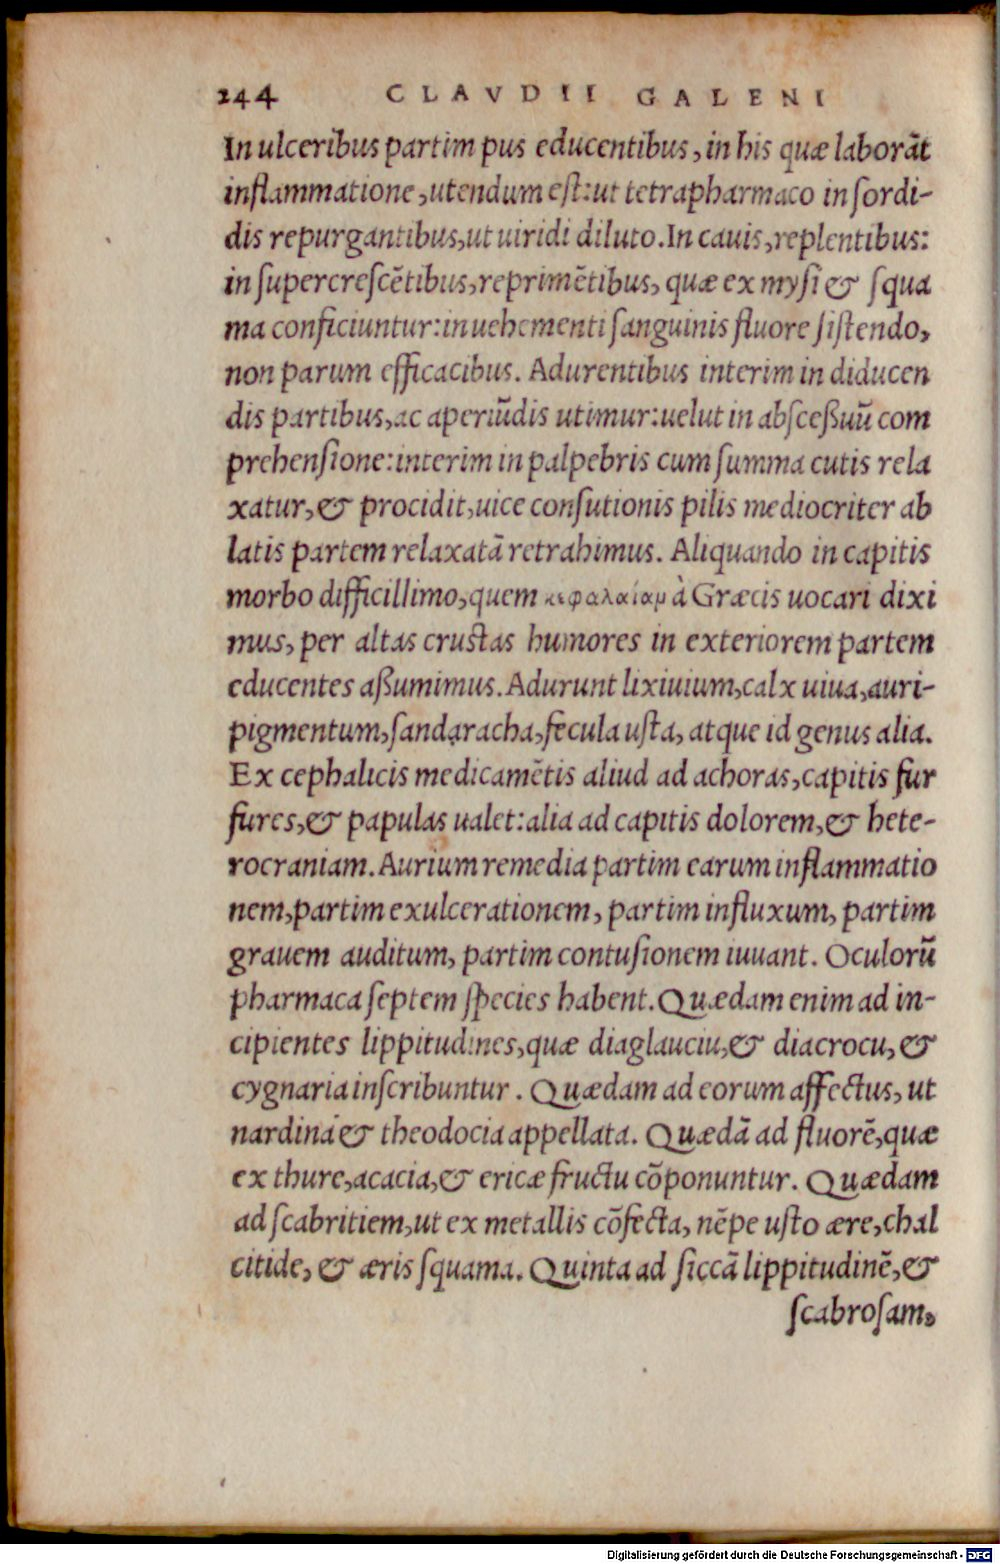 244 CLAVDII GALENI
In ulceribus partim pus educentibus, in his quæ laborãt
inflammatione, utendum est: ut tetrapharmaco in sordi-
dis repurgantibus, ut uiridi diluto. In cauis, replentibus:
in supercrescẽtibus, reprimẽtibus, quæ ex mysi & squa
ma conficiuntur: in uehementi sanguinis fluore sistendo,
non parum efficacibus. Adurentibus interim in diducen
dis partibus, ac aperiũdis utimur: uelut in abscessuũ com
prehensione: interim in palpebris cum summa cutis rela
xatur, & procidit, uice consutionis pilis mediocriter ab
latis partem relaxatã retrahimus. Aliquando in capitis
morbo difficillimo, quem κεφαλαίαμ à Græcis uocari dixi
mus, per altas crustas humores in exteriorem partem
educentes assumimus. Adurunt lixiuium, calx uiua, auri-
pigmentum, sandaracha, fecula usta, atque id genus alia.
Ex cephalicis medicamẽtis aliud ad achoras, capitis fur
fures, & papulas ualet: alia ad capitis dolorem, & hete-
rocraniam. Aurium remedia partim earum inflammatio
nem, partim exulcerationem, partim influxum, partim
grauem auditum, partim contusionem iuuant. Oculorũ
pharmaca septem species habent. Quædam enim ad in-
cipientes lippitudines, quæ diaglauciu, & diacrocu, &
cygnaria inscribuntur. Quædam ad eorum affectus, ut
nardina & theodocia appellata. Quædã ad fluorẽ, quæ
ex thure, acacia, & ericæ fructu cõponuntur. Quædam
ad scabritiem, ut ex metallis cõfecta, nẽpe usto ære, chal
citide, & æris squama. Quinta ad siccã lippitudinẽ, &
scabrosam,
Digitalisierung gefördert durch die Deutsche Forschungsgemeinschaft - DFG